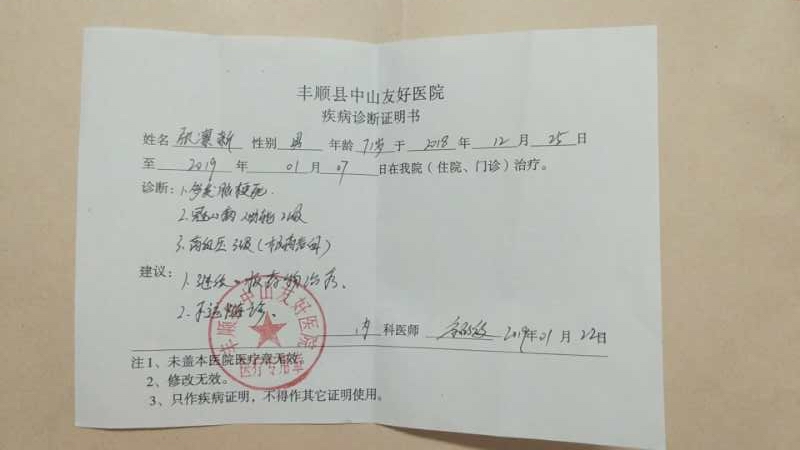 丰顺县中山友好医院
疾病诊断证明书
姓名 张 新 性别 男 年龄 71岁 于 2018 年 12 月 25 日
至 2019 年 01 月 07 日在我院（住院、门诊）治疗。
诊断：1.多发脑梗死
2.冠心病 心功能2级
3.高血压3级（极高危）
建议：1.继续 药物治疗、
2.不适 诊。
内 科医师 2019年01月22日
注1、未盖本医院医疗章无效。
2、修改无效。
3、只作疾病证明，不得作其它证明使用。
丰顺县中山友好医院
医疗专用章